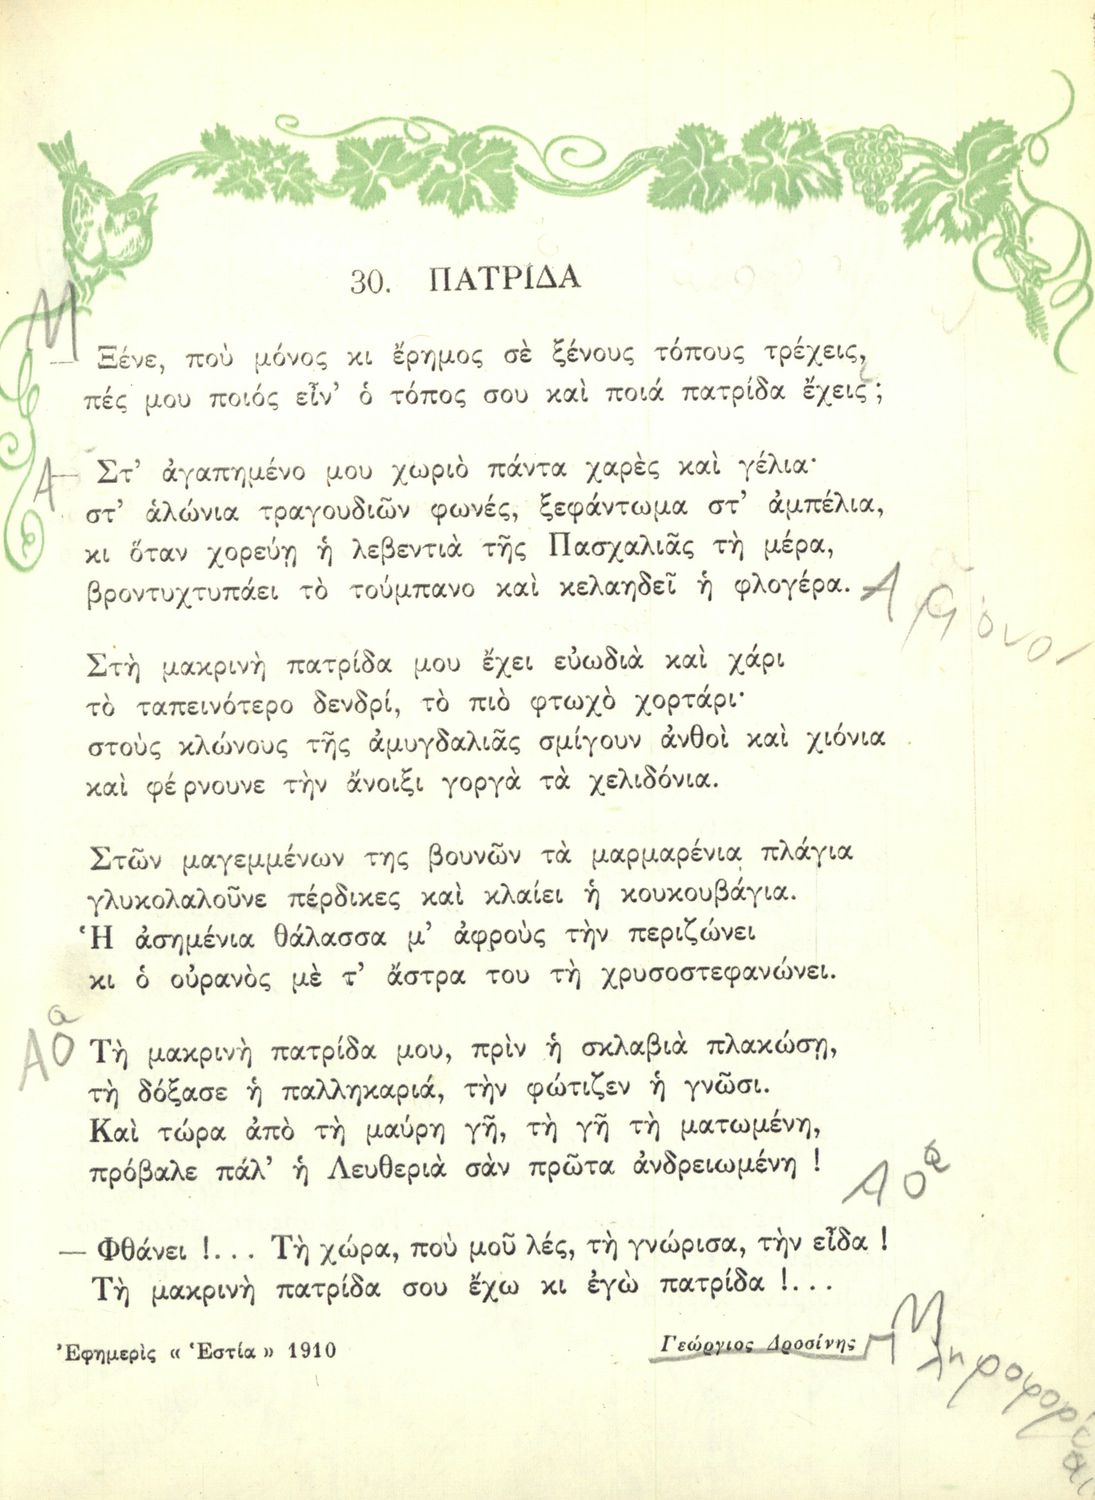 30. ΠΑΤΡΙΔΑ
Μ
— Ξένε, ποὺ μόνος κι ἔρημος σὲ ξένους τόπους τρέχεις,
πές μου ποιός εἶν' ὁ τόπος σου καὶ ποιά πατρίδα ἔχεις ;
Α
— Στ' ἀγαπημένο μου χωριὸ πάντα χαρὲς καὶ γέλια·
στ' ἁλώνια τραγουδιῶν φωνές, ξεφάντωμα στ' ἀμπέλια,
κι ὅταν χορεύῃ ἡ λεβεντιὰ τῆς Πασχαλιᾶς τὴ μέρα,
βροντυχτυπάει τὸ τούμπανο καὶ κελαηδεῖ ἡ φλογέρα.
Στὴ μακρινὴ πατρίδα μου ἔχει εὐωδιὰ καὶ χάρι
τὸ ταπεινότερο δενδρί, τὸ πιὸ φτωχὸ χορτάρι·
στοὺς κλώνους τῆς ἀμυγδαλιᾶς σμίγουν ἀνθοὶ καὶ χιόνια
καὶ φέρνουνε τὴν ἄνοιξι γοργὰ τὰ χελιδόνια.
Στῶν μαγεμμένων της βουνῶν τὰ μαρμαρένια πλάγια
γλυκολαλοῦνε πέρδικες καὶ κλαίει ἡ κουκουβάγια.
Ἡ ἀσημένια θάλασσα μ' ἀφροὺς τὴν περιζώνει
κι ὁ οὐρανὸς μὲ τ' ἄστρα του τὴ χρυσοστεφανώνει.
Τὴ μακρινὴ πατρίδα μου, πρὶν ἡ σκλαβιὰ πλακώσῃ,
τὴ δόξασε ἡ παλληκαριά, τὴν φώτιζεν ἡ γνῶσι.
Καὶ τώρα ἀπὸ τὴ μαύρη γῆ, τὴ γῆ τὴ ματωμένη,
πρόβαλε πάλ' ἡ Λευθεριὰ σὰν πρῶτα ἀνδρειωμένη !
— Φθάνει !... Τὴ χώρα, ποὺ μοῦ λές, τὴ γνώρισα, τὴν εἶδα !
Τὴ μακρινὴ πατρίδα σου ἔχω κι ἐγὼ πατρίδα !...
Ἐφημερὶς « Ἑστία » 1910
Γεώργιος Δροσίνης